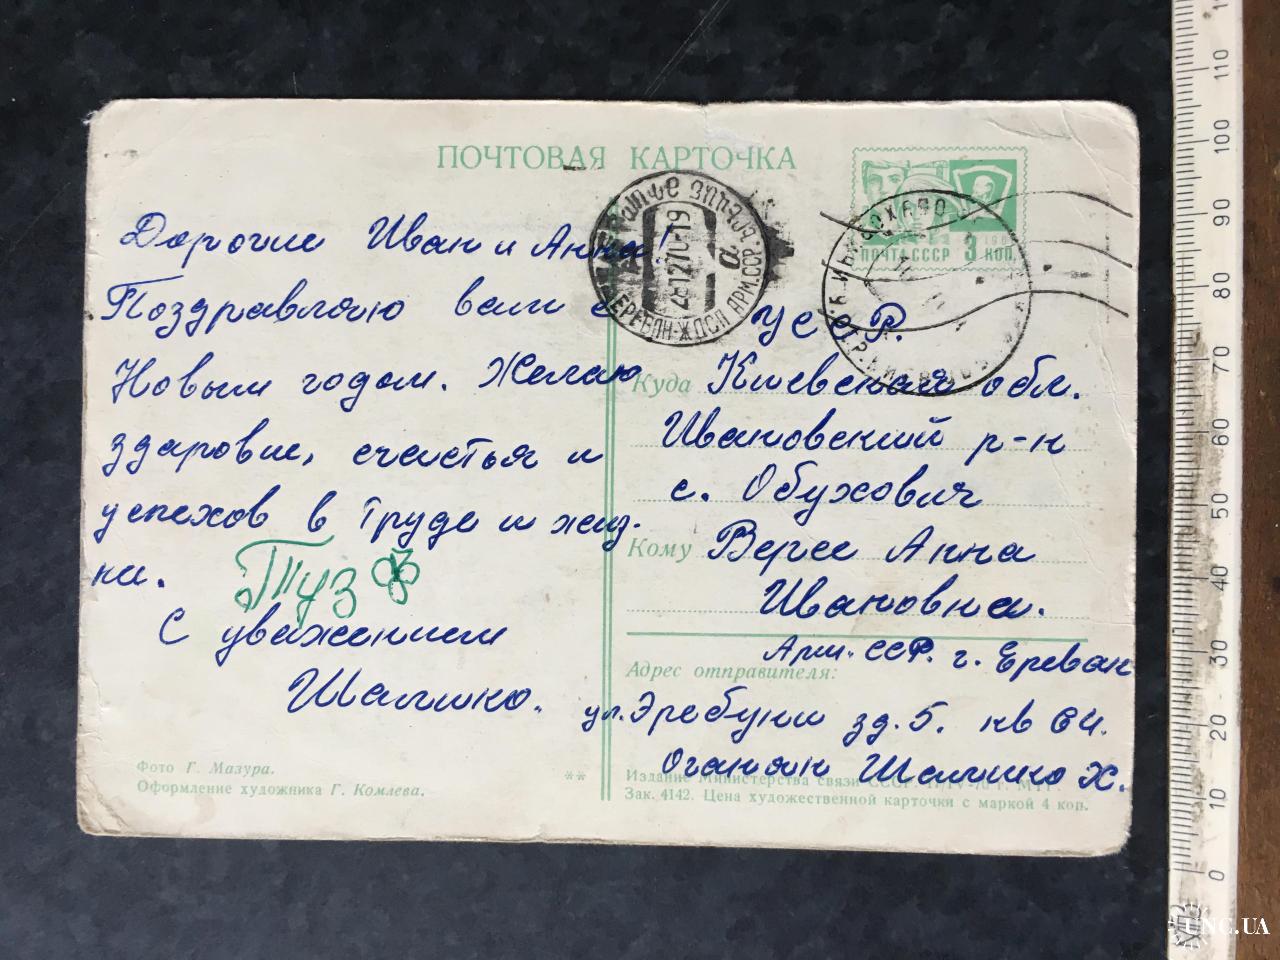 ПОЧТОВАЯ КАРТОЧКА
Дорогие Иван и Анна!
Поздравляю вам с
Новым годом. Желаю
здаровие, счастья и
успехов в труде и жиз-
ни.
Туз
С уважением
Шалико.
Фото Г. Мазура.
Оформление художника Г. Комлева.
**
ЕРЕВАН-ЖДСП АРМ.ССР
281270-19
а
ПОЧТА СССР 3 КОП.
УССР.
Куда Киевская обл.
Ивановский р-н
с. Обухович
Кому Верес Анна
Ивановна.
Арм. ССР. г. Ереван
Адрес отправителя:
ул. Эребуни зд. 5. кв 64.
Оганян Шалико Х.
Издание Министерства связи СССР. 17/IV-70 г. МПФ.
Зак. 4142. Цена художественной карточки с маркой 4 коп.
0 10 20 30 40 50 60 70 80 90 100 110
UNC.UA